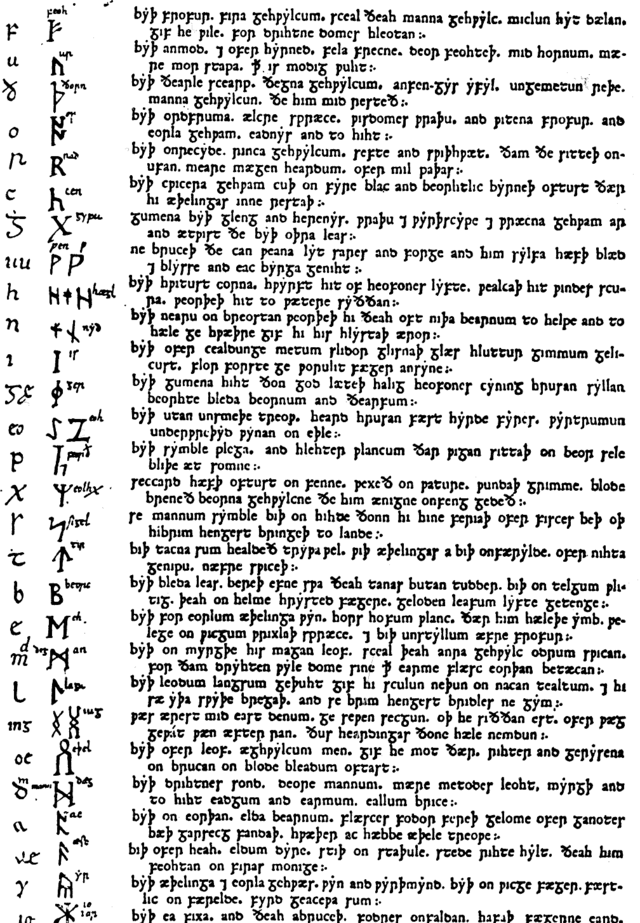 f ᚠ feoh byþ frofur. fira gehƿylcum. sceal ðeah manna gehƿylc. miclun hyt dælan.
gif he ƿile. for drihtne domes hleotan:.
u ᚢ ur byþ anmod. ⁊ ofer hyrned. fela frecne. deor feohteþ. mid hornum. mæ-
re mor stapa. ꝥ is modig ƿuht:.
ð ᚦ ðorn byþ ðearle scearp. ðegna gehƿylcum. anfen-gys yfyl. ungemetun reþe.
manna gehƿylcun. ðe him mid resteð:.
o ᚩ os byþ ordfruma. ælcre spræce. ƿisdomes ƿraþu. and ƿitena frofur. and
eorla gehƿam. eadnys and to hiht:.
r ᚱ rad byþ onrecyde. rinca gehƿylcum. sefte and sƿiþhƿæt. ðam ðe sitteþ on-
ufan. meare mægen heardum. ofer mil paþas:.
c cen byþ cƿicera gehƿam cuþ on fyre blac and beorhtlic byrneþ oftust ðær
hi æþelingas inne restaþ:.
g ᚷ gyfu gumena byþ gleng and herenys. ƿraþu ⁊ ƿyrþscype ⁊ ƿræcna gehƿam ar
and ætƿist ðe byþ oþra leas:.
uu ᚹ ƿen ne bruceþ ðe can ƿeana lyt sares and sorge and him sylfa hæfþ blæd
⁊ blysse and eac byrga geniht:.
h hægl byþ hƿitust corna. hƿyrft hit of heofones lyfte. ƿealcaþ hit ƿindes scu-
ra. ƿeorþeþ hit to ƿætere syððan:.
n nyd byþ nearu on breostan ƿeorþeþ hi ðeah oft niþa bearnum to helpe and to
hæle ge hƿæþre gif hi his hlystaþ æror:.
i ᛁ is byþ ofer cealdunge metum slidor glisnaþ glæs hluttur gimmum geli-
cust. flor forste ge ƿoruht fæger ansyne:.
ger byþ gumena hiht ðon god læteþ halig heofones cyning hrusan syllan
beorhte bleda beornum and ðearfum:.
eo eoh byþ utan unsmeþe treoƿ. heard hrusan fæst hyrde fyres. ƿyrtrumun
underƿreþyd ƿynan on eþle:.
p peorð byþ symble plega. and hlehter ƿlancum ðar ƿigan sittaþ on beor sele
bliþe æt somne:.
x eolhx seccard hæfþ oftust on fenne. ƿexeð on ƿature. ƿundaþ grimme. blode
breneð beorna gehƿylcne ðe him ænigne onfeng gedeð:.
s sigel se mannum symble biþ on hihte ðonn hi hine feriaþ ofer fisces beþ oþ
hibrim hengest bringeþ to lande:.
t ᛏ tir biþ tacna sum healdeð tryƿa ƿel. ƿiþ æþelingas a biþ onfærylde. ofer nihta
genipu. næfre sƿiceþ:.
b ᛒ beorc byþ bleda leas. bereþ efne sƿa ðeah tanas butan tudder. biþ on telgum ƿli-
tig. þeah on helme hrysted fægere. geloden leafum lyfte getenge:.
e ᛖ eh. byþ for eorlum æþelinga ƿyn. hors hofum ƿlanc. ðær him hæleþe ymb. ƿe-
lege on ƿicgum ƿrixlaþ spræce. ⁊ biþ unstyllum æfre frofur:.
m d deg an byþ on myrgþe his magan leof. sceal þeah anra gehƿylc odrum sƿican.
for ðam dryhten ƿyle dome sine ꝥ earme flæsc eorþan betæcan:.
l ᛚ lagu byþ leodum langsum geþuht gif hi sculun neþun on nacan tealtum. ⁊ hi
sæ yþa sƿyþe bregaþ. and se brim hengest bridles ne gym:.
ing ing ƿæs ærest mid east denum. ge seƿen secgun. oþ he siððan est. ofer ƿæg
geƿat ƿæn æfter ran. ðus heardingas ðone hæle nemdun:.
oe ᛟ eþel byþ ofer leof. æghƿylcum men. gif he mot ðær. rihter and gerysena
on brucan on blode bleadum oftast:.
m d mann dæg byþ drihtnes sond. deore mannum. mære metodes leoht, myrgþ and
to hiht eadgum and earmum. eallum brice:.
a ᚪ ac byþ on eorþan. elda bearnum. flæsces fodor fereþ gelome ofer ganotes
bæþ garsecg fandaþ. hƿæþer ac hæbbe æþele treoƿe:.
ae ᚫ æsc biþ ofer heah. eldum dyre. stiþ on staþule. stede rihte hylt. ðeah him
feohtan on firas monige:.
y yr byþ æþelinga ⁊ eorla gehƿæs. ƿyn and ƿyrþmynd. byþ on ƿicge fæger. fæst-
lic on færelde. fyrd geacewa sum:.
io io iar byþ ea fixa. and ðeah abruceþ. fodres onfaldan. hafaþ fægerne eard.